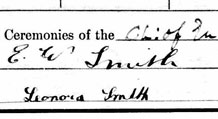 Ceremonies of the Ch. of En
E. W. Smith
Leonora Smith